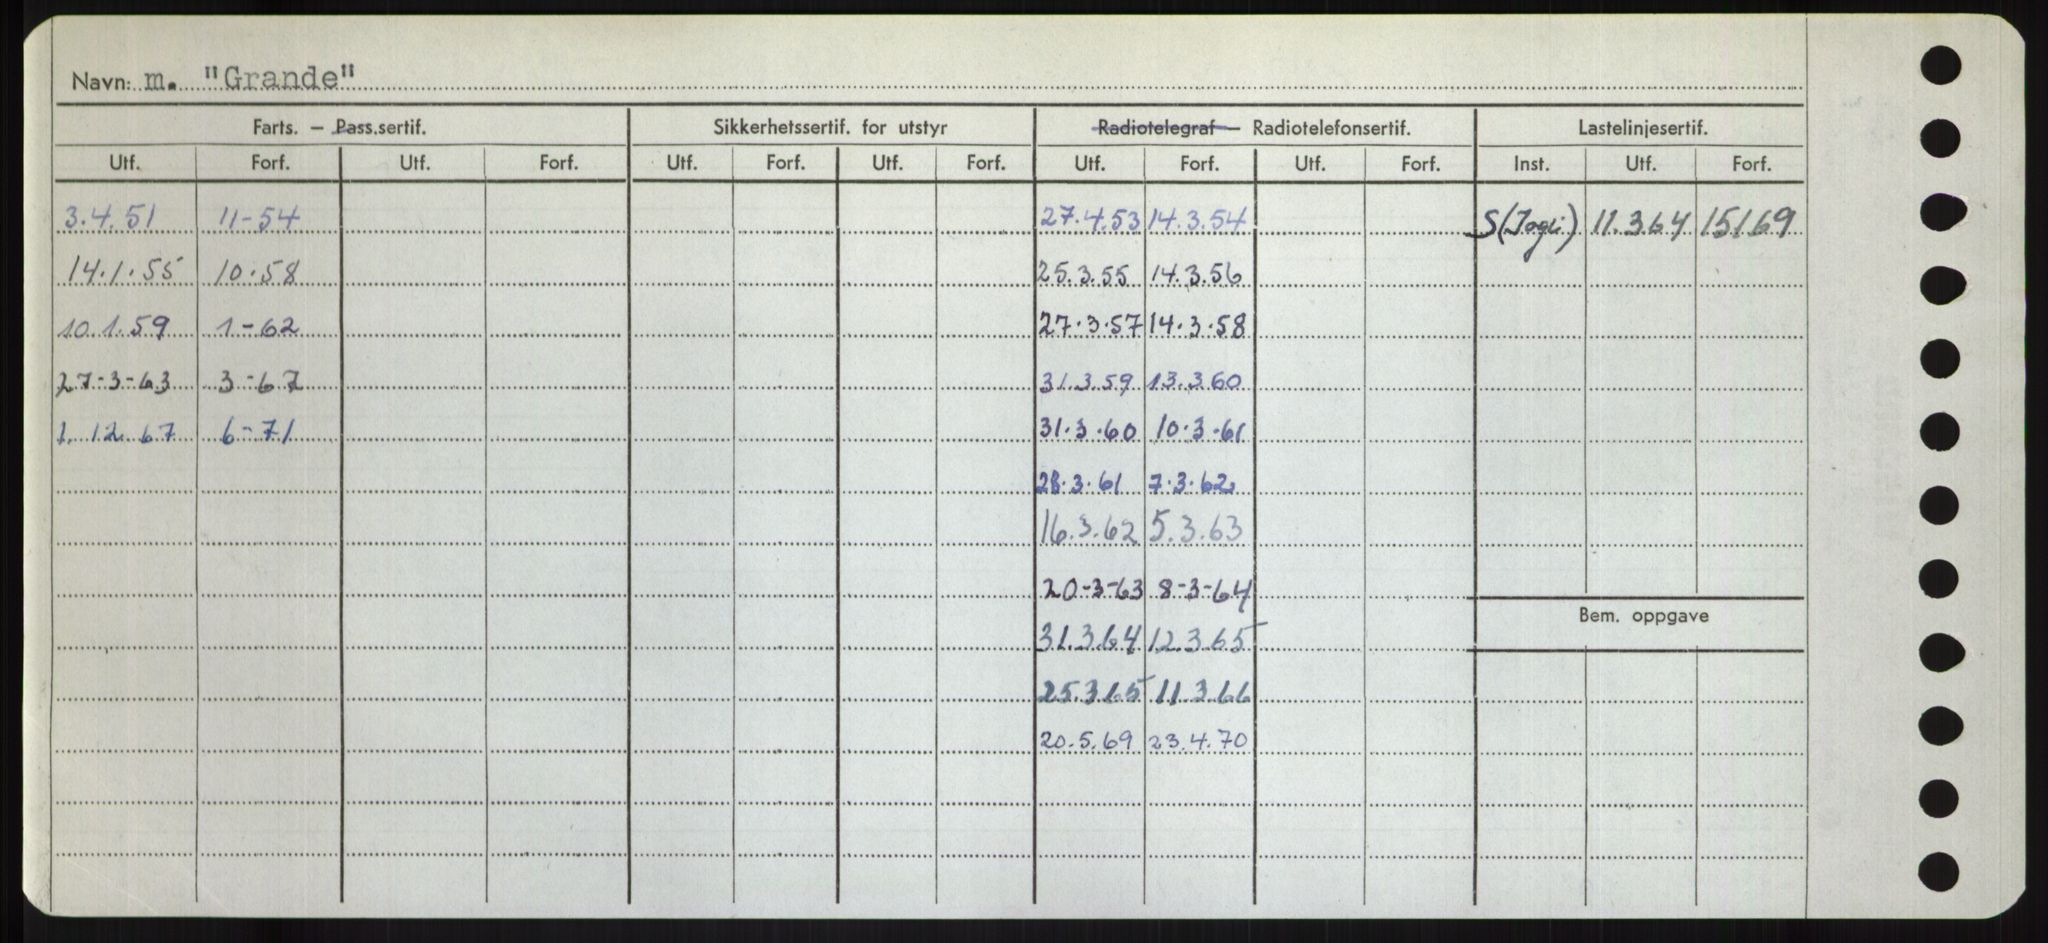 Navn: m. "Grande"
Farts. – Pass.sertif. Sikkerhetssertif. for utstyr Radiotelegraf – Radiotelefonsertif. Lastelinjesertif.
Utf. Forf. Utf. Forf. Utf. Forf. Utf. Forf. Utf. Forf. Utf. Forf. Inst. Utf. Forf.
3.4.51 11-54 27.4.53 14.3.54 S(Jogli) 11.3.64 15.1.69
14.1.55 10.58 25.3.55 14.3.56
10.1.59 1-62 27.3.57 14.3.58
27-3-63 3-67 31.3.59 13.3.60
1.12.67 6-71 31.3.60 10.3.61
28.3.61 7.3.62
16.3.62 5.3.63
20-3-63 8-3-64
Bem. oppgave
31.3.64 12.3.65
25.3.65 11.3.66
20.5.69 23.4.70